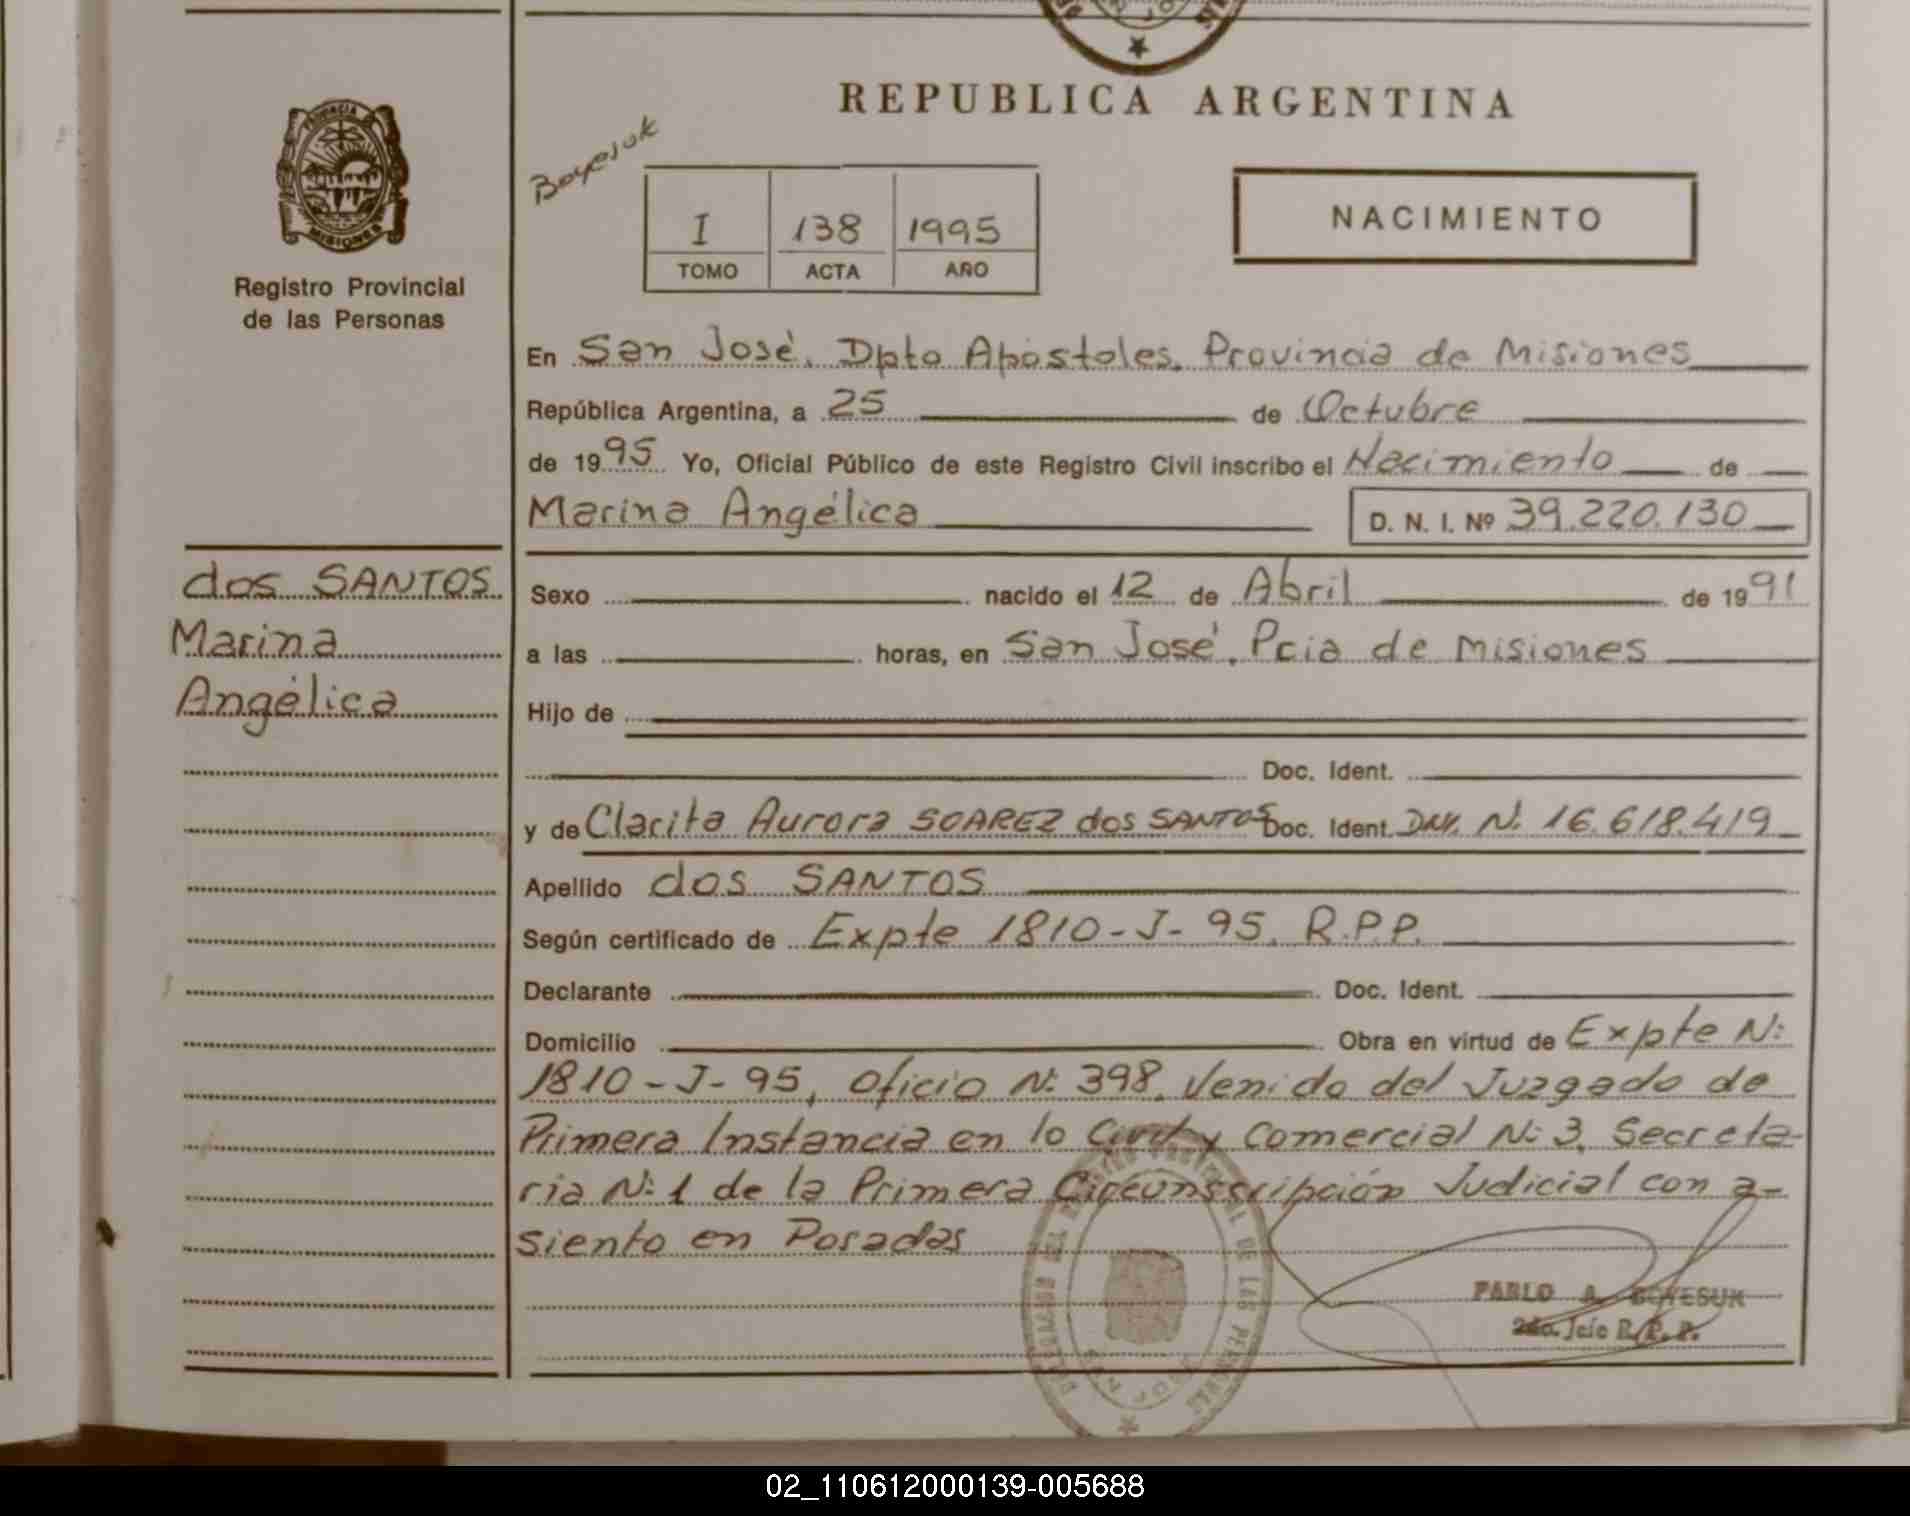 REPUBLICA ARGENTINA
PROVINCIA DE
MISIONES
Registro Provincial
de las Personas
Boyesuk
I 138 1995
TOMO ACTA AÑO
NACIMIENTO
En San José. Dpto Apóstoles. Provincia de Misiones
República Argentina, a 25 de Octubre
de 1995 Yo, Oficial Público de este Registro Civil inscribo el Nacimiento de
Marina Angélica D. N. I. Nº 39.220.130
dos SANTOS
Marina
Angélica
Sexo nacido el 12 de Abril de 1991
a las horas, en San José. Pcia de Misiones
Hijo de
Doc. Ident.
y de Clarita Aurora SOAREZ dos SANTOS Doc. Ident. DNI. N: 16.618.419
Apellido dos SANTOS
Según certificado de Expte 1810-J-95. R.P.P.
Declarante Doc. Ident.
Domicilio Obra en virtud de Expte N:
1810-J-95, Oficio N: 398. Venido del Juzgado de
Primera Instancia en lo Civil y Comercial N: 3. Secreta-
ria N: 1 de la Primera Circunscripción Judicial con a-
siento en Posadas
PABLO A. BOYESUK
2do. Jefe R. P. P.
02_110612000139-005688